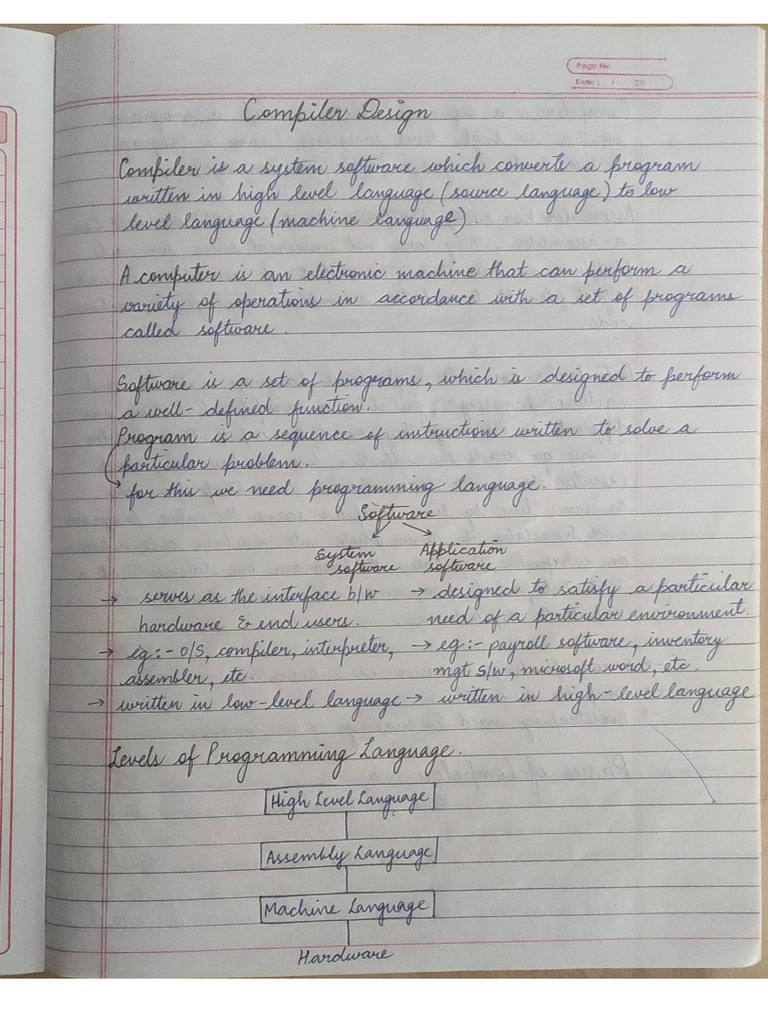 Page No.
Date: / 20
Compiler Design
Compiler is a system software which converts a program
written in high level language (source language) to low
level language (machine language).
A computer is an electronic machine that can perform a
variety of operations in accordance with a set of programs
called software.
Software is a set of programs, which is designed to perform
a well-defined function.
Program is a sequence of instructions written to solve a
particular problem.
for this we need programming language.
Software
System Application
software software
→ serves as the interface b/w → designed to satisfy a particular
hardware & end users. need of a particular environment.
→ eg:- O/S, compiler, interpreter, → eg:- payroll software, inventory
assembler, etc. mgt s/w, microsoft word, etc.
→ written in low-level language → written in high-level language
Levels of Programming Language.
High Level Language
Assembly Language
Machine Language
Hardware